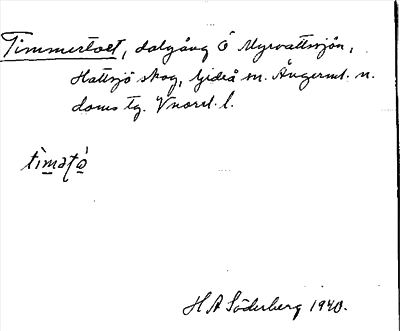 Timmertoet, dalgång Ö Myrvattssjön,
Hattsjö skog, Gideå sn. Ångerml. n.
doms tg. Vnorrl. l.
tìmətò
H A Söderberg 1940.